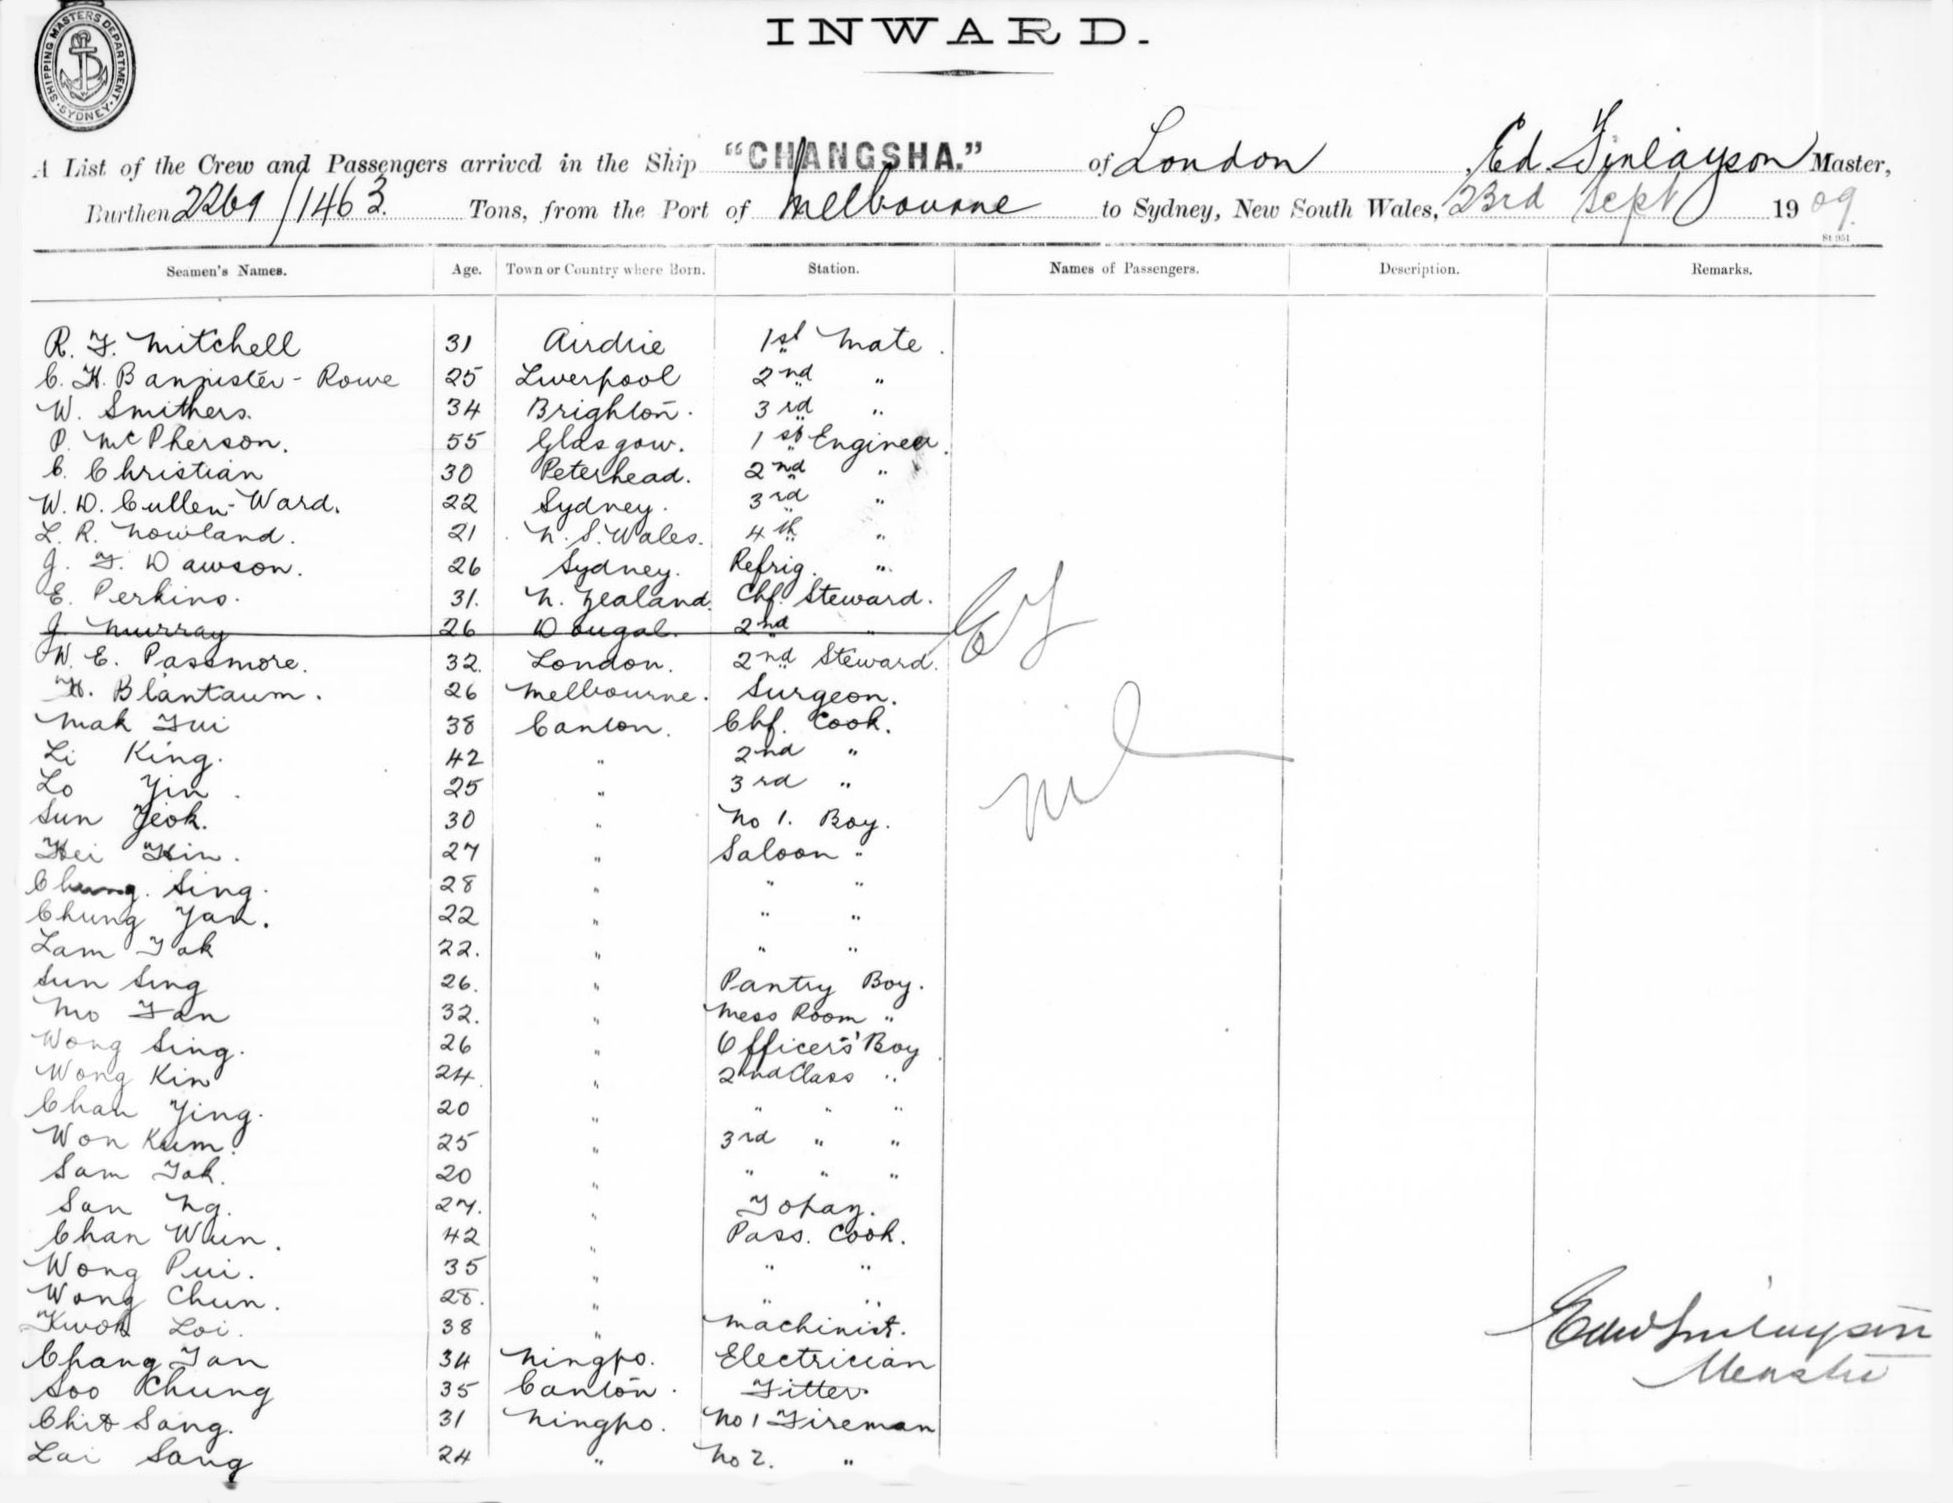 INWARD.
SHIPPING MASTERS DEPARTMENT. SYDNEY
A List of the Crew and Passengers arrived in the Ship "CHANGSHA." of London , Ed. Finlayson Master,
Burthen 2269/1463. Tons, from the Port of Melbourne to Sydney, New South Wales, 23rd Sept 1909.
St 951
Seamen's Names. Age. Town or Country where Born. Station. Names of Passengers. Description. Remarks.
R. F. Mitchell 31 Airdrie 1st Mate.
C. H. Bannister-Rowe 25 Liverpool 2nd "
W. Smithers. 34 Brighton. 3rd "
P. McPherson. 55 Glasgow. 1st Engineer.
C. Christian 30 Peterhead. 2nd "
W. D. Cullen-Ward. 22 Sydney. 3rd "
L. R. Nowland. 21 N. S. Wales. 4th "
J. F. Dawson. 26 Sydney. Refrig. "
E. Perkins. 31. N. Zealand. Chf. Steward.
J. Murray 26 Dougal. 2nd " EF
W. E. Passmore. 32. London. 2nd Steward.
H. Blantaum. 26 Melbourne. Surgeon.
Mak Fui 38 Canton. Chf. Cook.
Li King. 42 " 2nd "
Nil
Lo Yin. 25 " 3rd "
Sun Yeok. 30 " No 1. Boy.
Hei Hin. 27 " Saloon "
Chung. Sing. 28 " " "
Chung Yan. 22 " " "
Lam Fok 22. " " "
Sun Sing 26. " Pantry Boy.
Mo Fan 32. " Mess Room "
Wong Sing. 26 " Officers' Boy
Wong Kin 24. " 2nd Class "
Chan Ying. 20 " " " "
Won Kum. 25 " 3rd " "
Sam Fok. 20 " " " "
San Ng. 27. " Topaz.
Chan Wun. 42 " Pass. Cook.
Wong Pui. 35 " " "
Wong Chun. 28. " " "
Kwok Loi. 38 " Machinist.
Edw Finlayson
Chang Fan 34 Ningpo. Electrician
Master
Soo Chung 35 Canton. Fitter.
Chit Sang. 31 Ningpo. No 1 Fireman
Lai Sang 24 " No 2. "